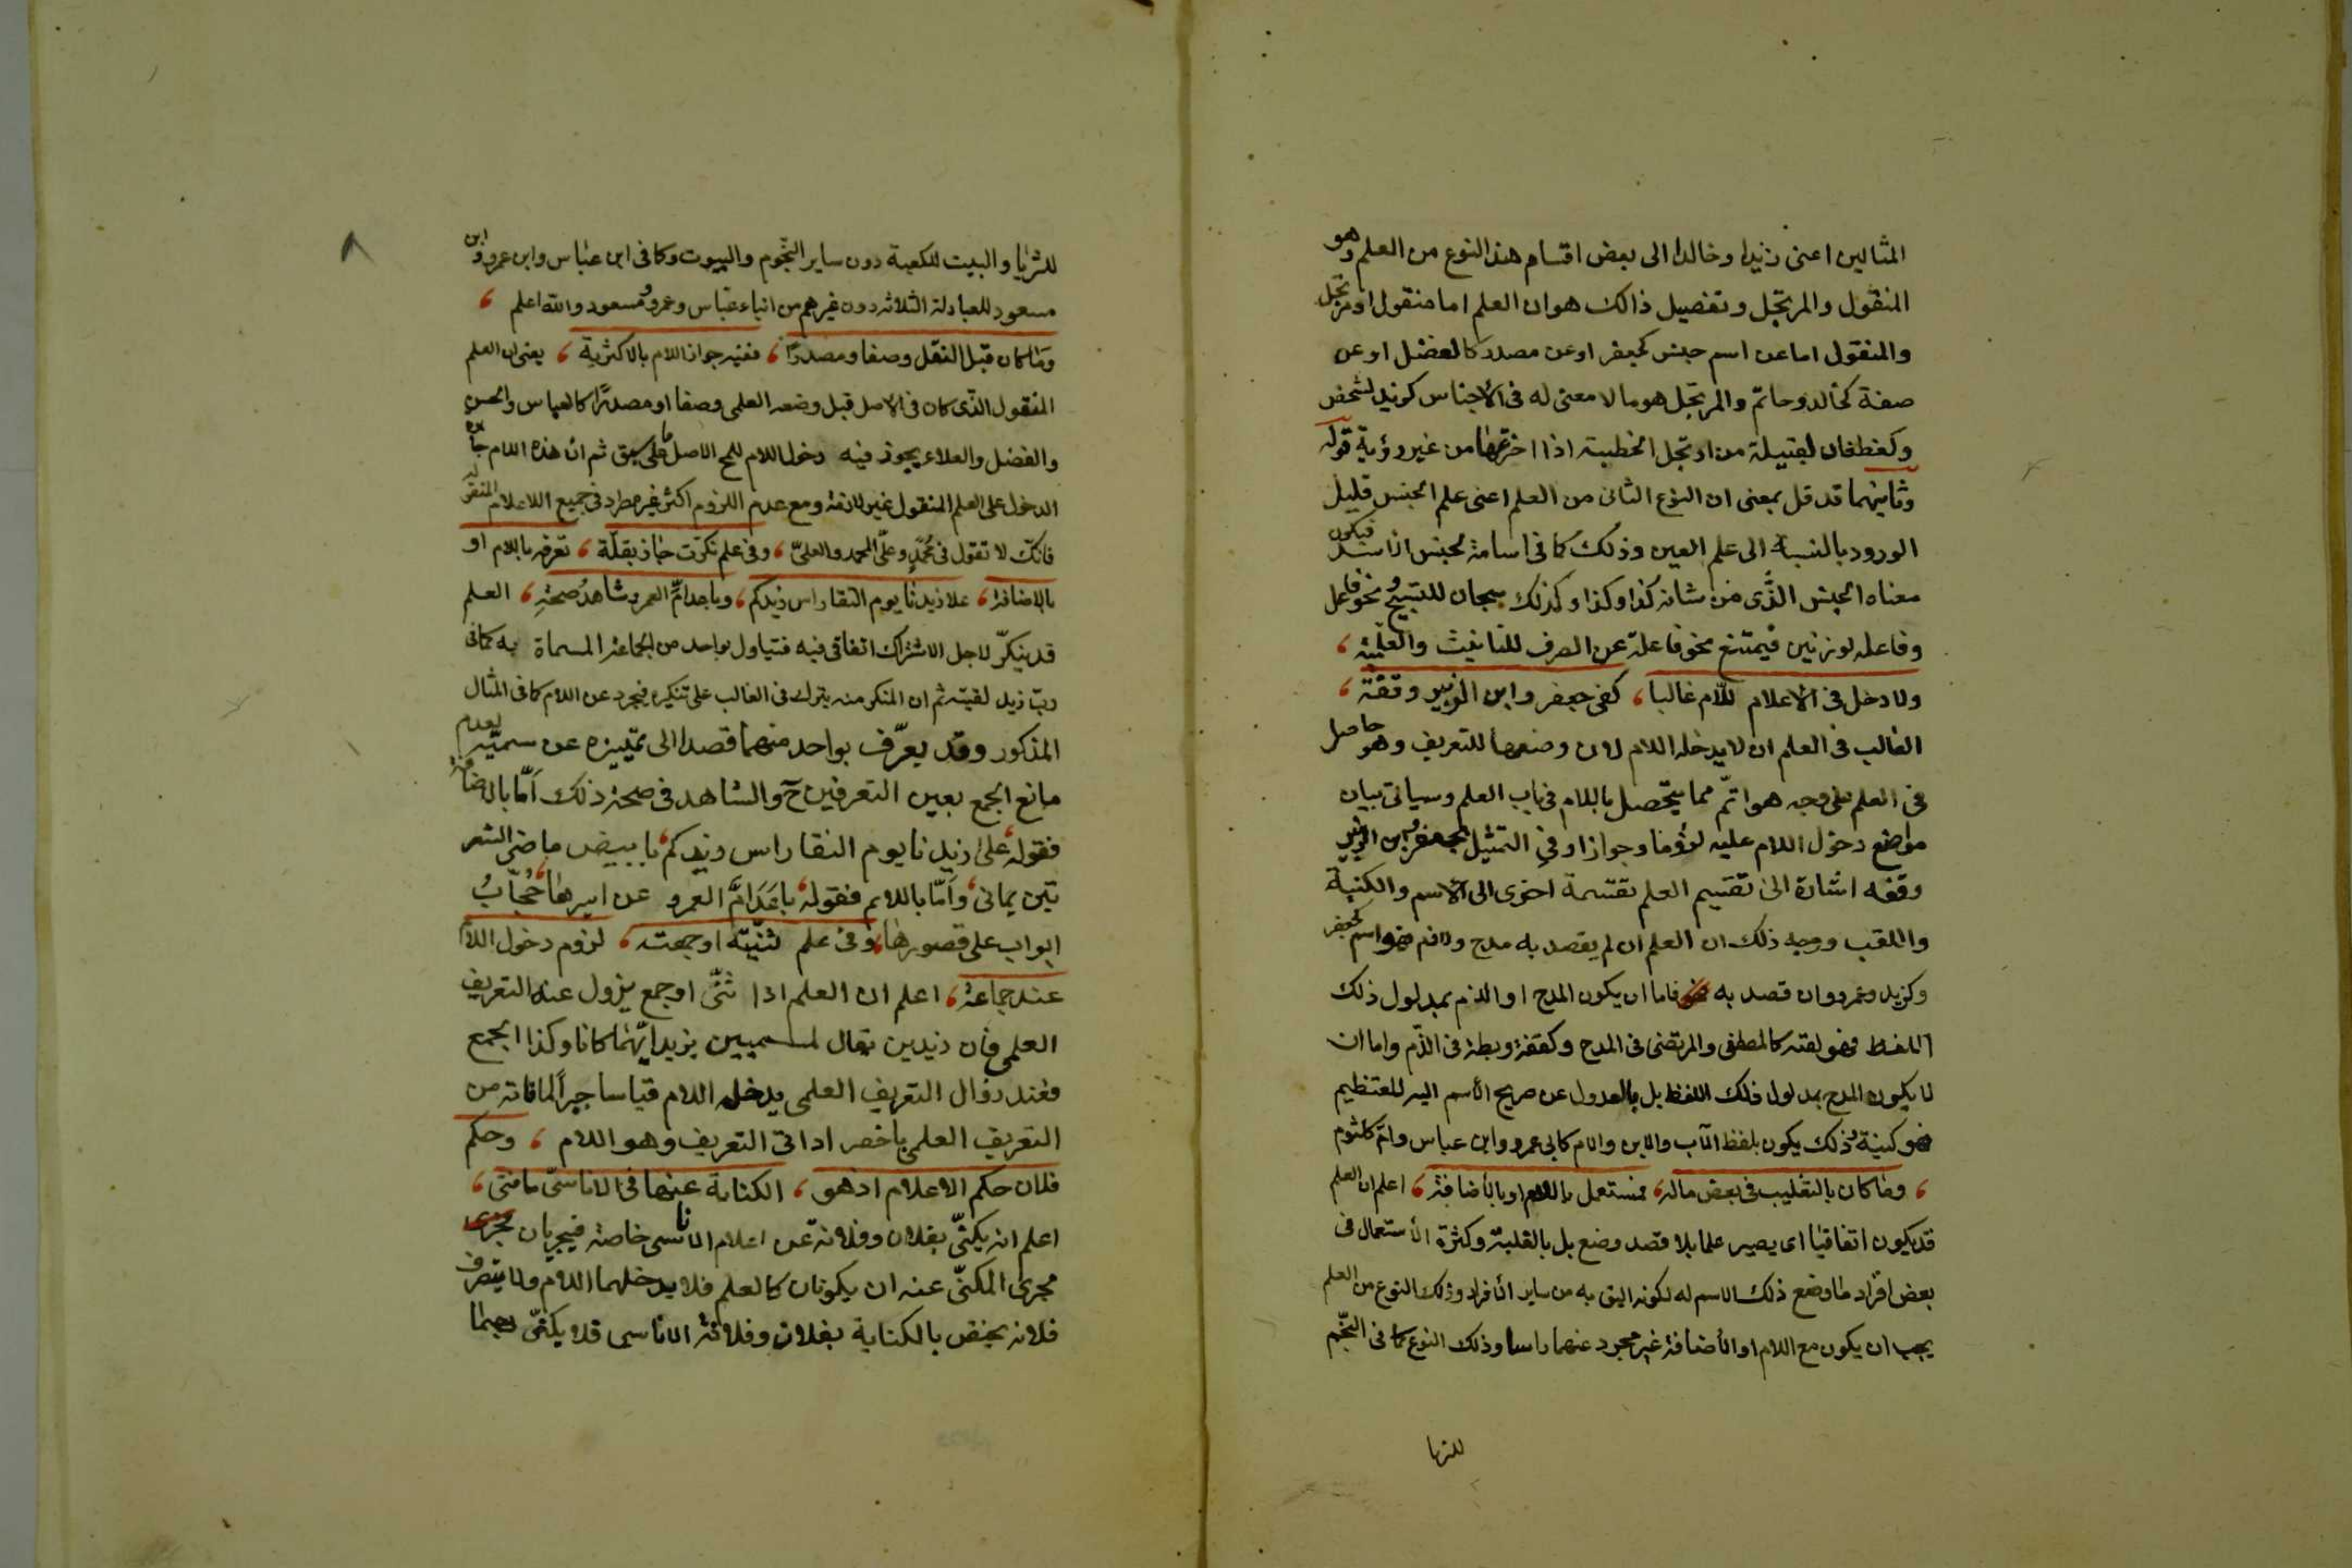 المثالين اعنى زيدا وخالدا الى بعض اقسام هذا النوع من العلم وهو
المنقول والمرتجل وتفصيل ذالك هو ان العلم اما منقول او مرتجل
والمنقول اما عن اسم جنس كجعفر او عن مصدر كالفضل او عن
صفة كخالد وحاتم والمرتجل هو ما لا معنى له فى الأجناس كزيد لشخص
وكغطفان لقبيلة من ارتجل الخطبة اذا اخترعها من غير روٴية قوله
وثانيهما قد قل بمعنى ان النوع الثانى من العلم اعنى علم الجنس قليل
الورود بالنسبة الى علم العين وذلك كما فى اسامة لجنس الاسد فيكون
معناه الجنس الذّى من شانه كذا وكذا وكذلك سبحان للتسبيح ونحو فاعل
وفاعله لوزنين فيمتنع نحو فاعلة عن الصرف للتانيث والعلمية ،
ولا دخل فى الأعلام للّام غالبا ، كفى جعفر وابن الزبير وقفّة ،
الغالب فى العلم ان لا يدخله اللام لان وضعها للتعريف وهو حاصل
فى العلم على وجه هو اتمّ مما يتحصل باللام فى باب العلم وسياتى بيان
مواضع دخول اللام عليه لزوما وجوازا وفى التمثيل بجعفر وابن الزبير
وقفه اشارة الى تقسيم العلم بقسمة اخرى الى الاسم والكنية
واللقب ووجه ذلك ان العلم ان لم يقصد به مدح ولا ذم فهو اسم كجعفر
وكزيد وعمرو وان قصد به فاما ان يكون المدح او الذم بمدلول ذلك
اللفظ فهو لقبه كالمصطفى والمرتضى فى المدح وكقفة وبطة فى الذّم واما ان
لا يكون المدح بمدلول ذلك اللفظ بل بالعدول عن صريح الأسم اليه للتعظيم
فهو كنية ولذلك يكون بلفظ الأب والابن والام كابى عمرو وابن عباس وامّ كلثوم
، وما كان بالتغليب فى بعض ماله ، مستعمل باللام او بالأضافة ، اعلم ان العلم
قد يكون اتفاقيا اى يصير علما بلا قصد وضع بل بالغلبة وكثرة الأستعمال فى
بعض افراد ما وضع ذلك الاسم له لكونه اليق به من ساير الأفراد وذلك النوع من العلم
يجب ان يكون مع اللام او الأضافة غير مجرد عنهما راسا وذلك النوع كما فى النّجم
للثريا
للثريا والبيت للكعبة دون ساير النّجوم والبيوت وكما فى ابن عباس وابن عمر وابن
مسعود للعبادلة الثلاثه دون غيرهم من ابناء عبّاس وعمر ومسعود والله اعلم ،
وما كان قبل النقل وصفا ومصدرًا ، ففيه جواز اللام بالاكثرية ، يعنى ان العلم
المنقول الذّى كان فى الاصل قبل وضعه العلمى وصفا او مصدرًا كالعباس والحسن
والفضل والعلاء يجوز فيه دخول اللام للمح الاصل على ما سبق ثم ان هذه اللام جائزه
الدخول على العلم المنقول غير لازمة ومع عدم اللزوم اكثر غير مطرد فى جميع الاعلام المنقولة
فانّك لا تقول فى محمّد وعلّى المحمد والعلىّ ، وفى علم نكرّت جاز بقلّة ، تعرفه باللام او
بالاضافة ، علا زيدنا يوم النقا راس زيدكم ، وباعد امّ العمرو شاهدُ صحّةِ ، العلم
قد ينكّر لاجل الاشتراك اتفاقى فيه فتياول بواحد من الجماعة المسماة به كما فى
ربّ زيد لقيته ثم ان المنكر منه يترك فى الغالب على تنكيره فيجرد عن اللام كما فى المثال
المذكور وقد يعرّف بواحد منهما قصدا الى تمييزه عن سميّه لعدم
مانع الجمع بعين التعرفين ح والشاهد فى صحة ذلك اَمّا بالاضافة
فقوله علىٰ زيدنا يوم النقا راس زيدكم ، بابيض ماضى الشفر
تين يمانى ، واَمّا باللام فقوله ، باعَدَ امَّ العمرو عن اسيرها ، حُجّابُ
ابواب على قصورها ، وفى علم ثنّيته او جمعته ، لزوم دخول اللام
عند جماعة ، اعلم ان العلم اذا ثنّى او جمع يزول عنه التعريف
العلمى فان زيدين يقال لمسميين بزيد ايّهما كانا وكذا الجمع
فعند زوال التعريف العلمى يدخله اللام قياسا جبراً لما فاته من
التعريف العلمى باخصر اداتى التعريف وهو اللام ، وحكم
فلان حكم الاعلام اذ هو ، الكناية عنها فى الاناسىّ يا فتى ،
اعلم انه يكنّى بفلان وفلانة عن اعلام الاناسى خاصة فيجريان
مجرى المكنّى عنه ان يكونان كالعلم فلا يدخلهما اللام ولا يتصرف
فلانه يختص بالكناية بفلان وفلانة الاناسى فلا يكنّى بهما